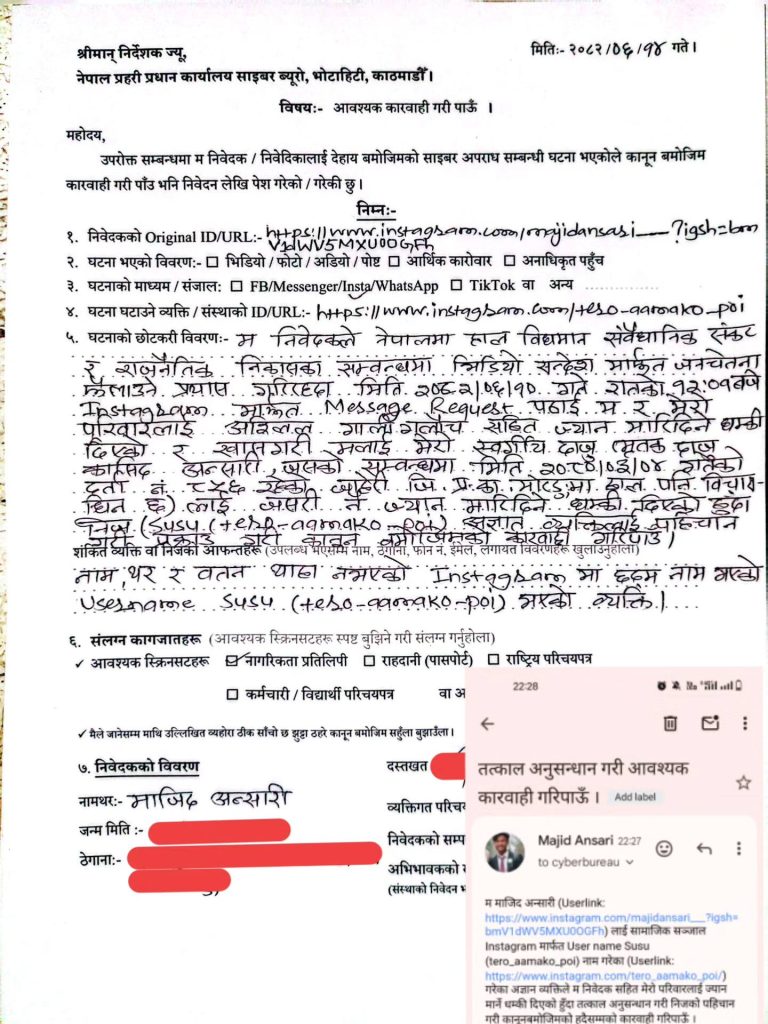 श्रीमान् निर्देशक ज्यू,
मितिः- २०८२/०६/१४ गते ।
नेपाल प्रहरी प्रधान कार्यालय साइबर ब्यूरो, भोटाहिटी, काठमाडौँ ।
विषयः- आवश्यक कारवाही गरी पाऊँ ।
महोदय,
उपरोक्त सम्बन्धमा म निवेदक / निवेदिकालाई देहाय बमोजिमको साइबर अपराध सम्बन्धी घटना भएकोले कानून बमोजिम
कारवाही गरी पाउँ भनि निवेदन लेखि पेश गरेको / गरेकी छु ।
निम्नः-
१. निवेदकको Original ID/URL:- https://www.instagram.com/majidansari___?igsh=bm
V1dWV5MXU0OGFh
२. घटना भएको विवरणः- भिडियो / फोटो / अडियो / पोष्ट आर्थिक कारोवार अनाधिकृत पहुँच
३. घटनाको माध्यम / संजालः FB/Messenger/Insta/WhatsApp TikTok वा अन्य
४. घटना घटाउने व्यक्ति / संस्थाको ID/URL:- https://www.instagram.com/tero-aamako-poi
५. घटनाको छोटकरी विवरणः- म निवेदकले नेपालमा हाल विद्यमान संवैधानिक संकट
र राजनैतिक निकासका सम्वन्धमा भिडियो सन्देश मार्फत जनचेतना
फैलाउने प्रयास गरिरहदा मिति २०८२/०६/१० गते रातको १२:०१ बजे
Instagram मार्फत Message Request पठाई म र मेरो
परिवारलाई अश्लिल गाली गलौच सहित ज्यान मारिदिने धम्की
दिएको र खासगरी मलाई मेरो स्वर्गीय दाजु (मृतक दाजु
अन्सारी जसको सम्वन्धमा मिति रातको
दर्ता नं. ८५६ रहेको जाहेरी जि. प्र. का. मोरङमा हाल पनि विचारा-
धिन छ) लाई जसरी नै ज्यान मारिदिने धम्की दिएको हुँदा
निज (Susu (tero-aamako-poi) अज्ञात व्यक्तिलाई पहिचान
गरी पक्राउ गरी कानून बमोजिमको कारवाही गरिपाउँ ।
शंकित व्यक्ति वा निजको आफन्तहरू (उपलब्ध भएसम्म नाम, ठेगाना, फोन नं. ईमेल, लगायत विवरणहरू खुलाउनुहोला)
नाम, थर र वतन थाहा नभएको Instagram मा छद्म नाम भएको
Username Susu (tero-aamako-poi) भएको व्यक्ति ।
६. संलग्न कागजातहरू (आवश्यक स्क्रिनसटहरू स्पष्ट बुझिने गरी संलग्न गर्नुहोला)
✓ आवश्यक स्क्रिनसटहरू नागरिकता प्रतिलिपी राहदानी (पासपोर्ट) राष्ट्रिय परिचयपत्र
कर्मचारी / विद्यार्थी परिचयपत्र वा
✓ मैले जानेसम्म माथि उल्लिखित व्यहोरा ठीक साँचो छ झुट्ठा ठहरे कानून बमोजिम सहुँला बुझाउँला ।
७. निवेदकको विवरण
दस्तखत
नामथरः- माजिद अन्सारी
व्यक्तिगत परिचय
जन्म मिति :-
निवेदकको सम्प
ठेगानाः-
अभिभावकको
(संस्थाको निवेदन
22:28
तत्काल अनुसन्धान गरी आवश्यक
कारवाही गरिपाऊँ । Add label
Majid Ansari 22:27
to cyberbureau
म माजिद अन्सारी (Userlink:
https://www.instagram.com/majidansari___?igsh=
bmV1dWV5MXU0OGFh) लाई सामाजिक सञ्जाल
Instagram मार्फत User name Susu
(tero_aamako_poi) नाम गरेका (Userlink:
https://www.instagram.com/tero_aamako_poi/)
गरेका अज्ञान व्यक्तिले म निवेदक सहित मेरो परिवारलाई ज्यान
मार्ने धम्की दिएको हुँदा तत्काल अनुसन्धान गरी निजको पहिचान
गरी कानूनबमोजिमको हदैसम्मको कारवाही गरिपाऊँ ।